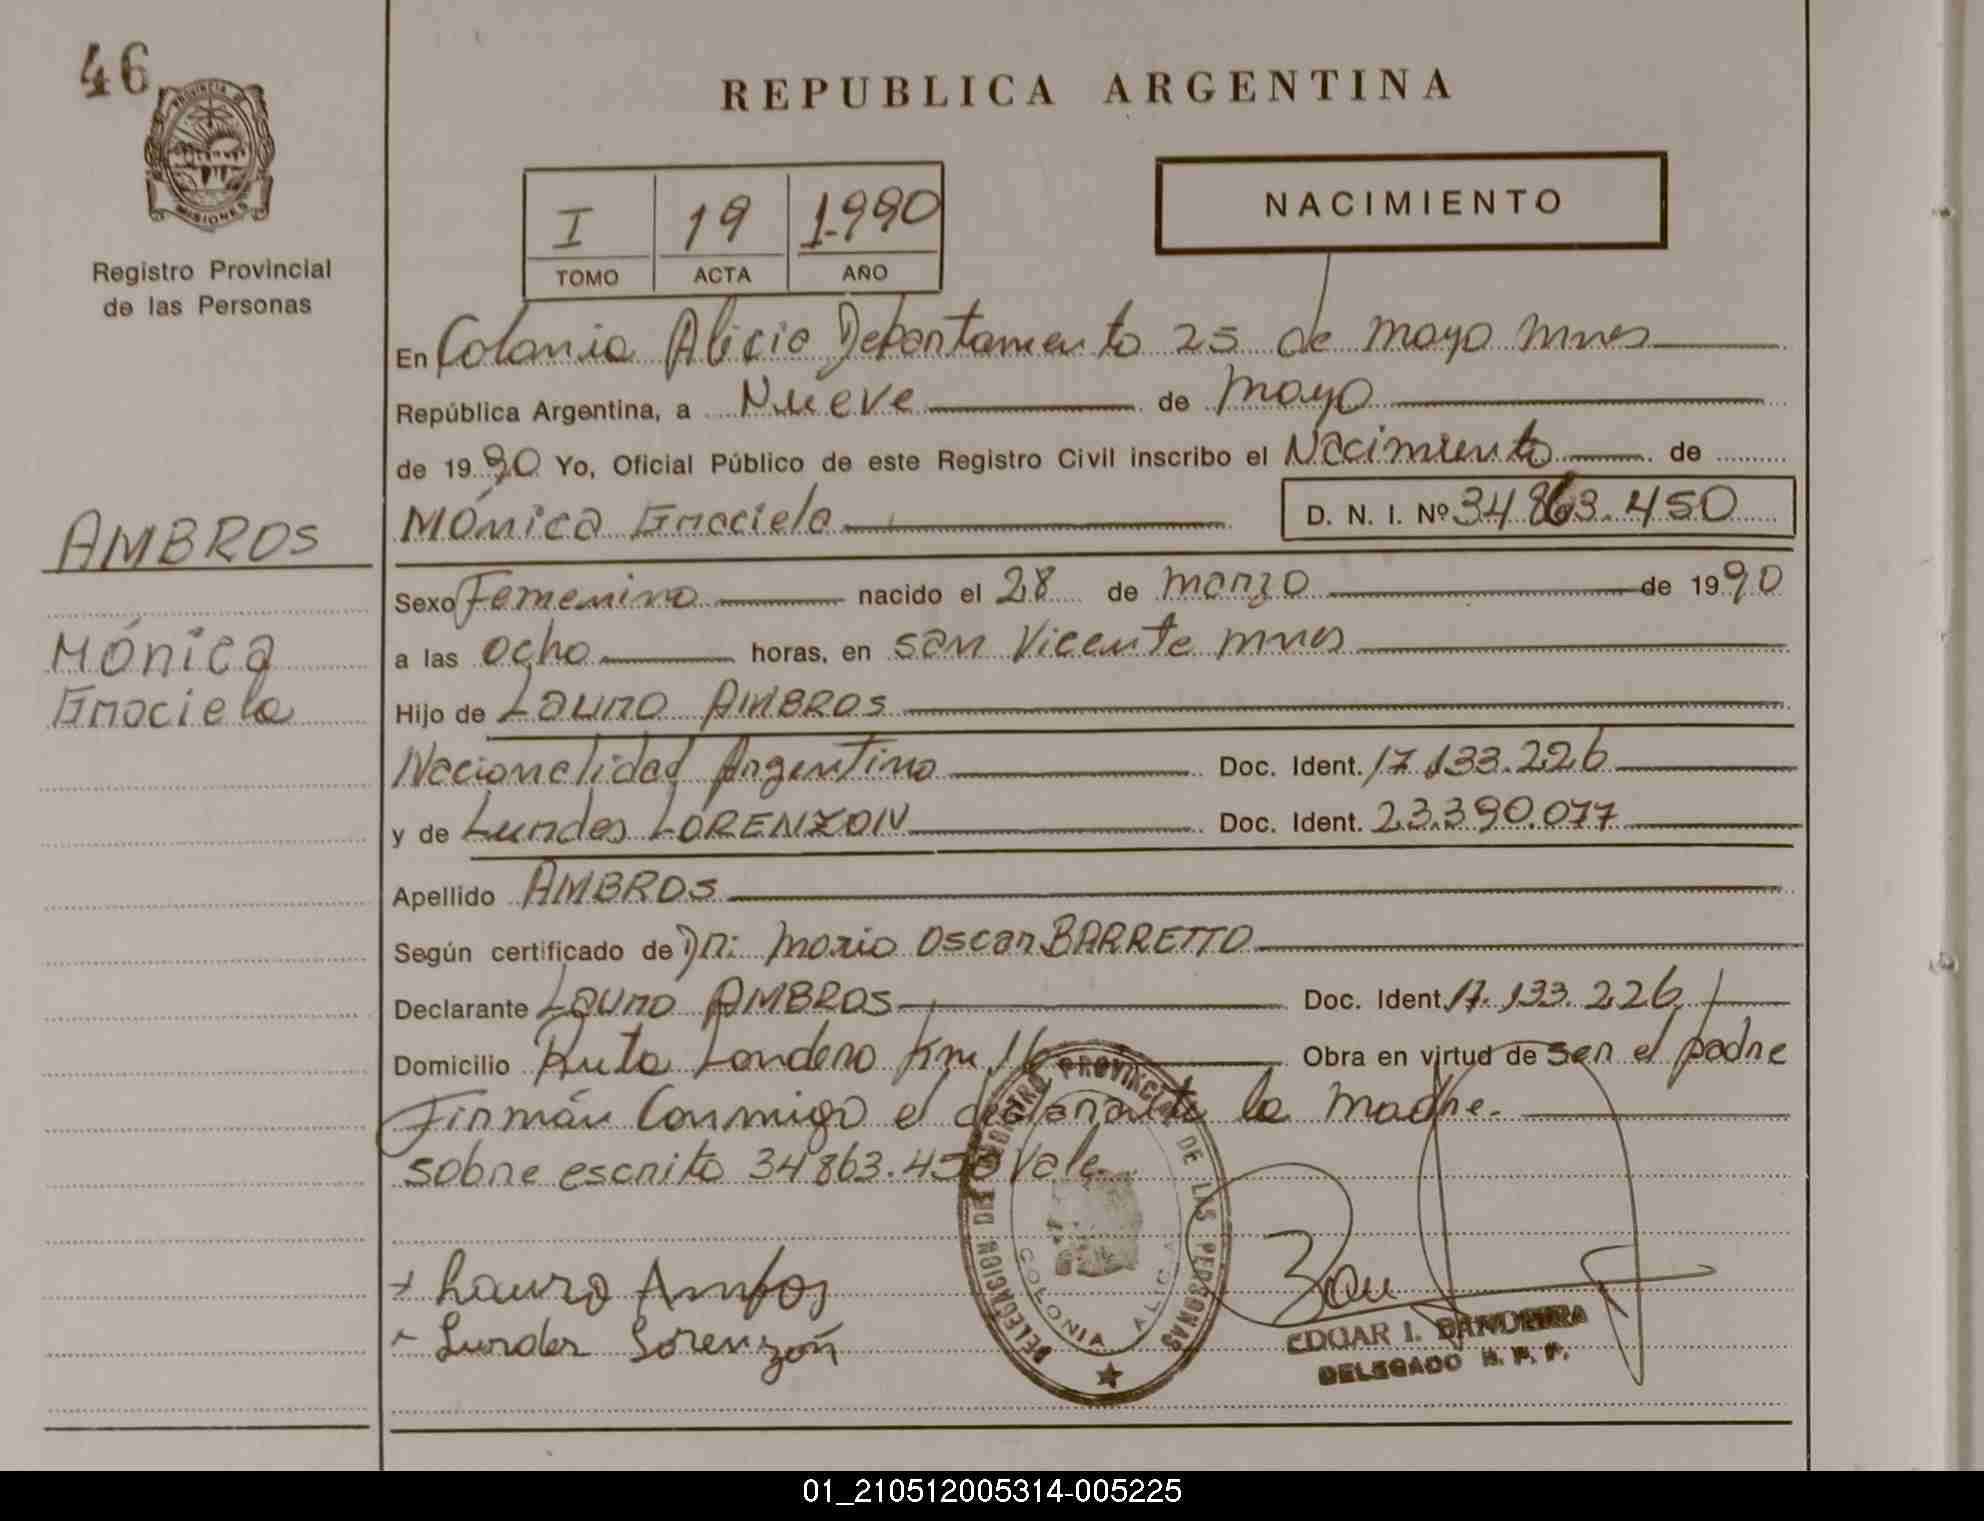 46
PROVINCIA DE
MISIONES
Registro Provincial
de las Personas
REPUBLICA ARGENTINA
I 19 1.990
TOMO ACTA AÑO
NACIMIENTO
En Colonia Alicia Departamento 25 de mayo mnes
República Argentina, a Nueve de mayo
de 19 90 Yo, Oficial Público de este Registro Civil inscribo el Nacimiento de
Mónica Graciela D. N. I. Nº 34 863.450
AMBROS
Mónica
Graciela
Sexo Femenino nacido el 28 de marzo de 19 90
a las ocho horas, en san Vicente mnes
Hijo de Lauro AMBROS
Nacionalidad Argentino Doc. Ident. 17.133.226
y de Lurdes LORENZON Doc. Ident. 23.390.077
Apellido AMBROS
Según certificado de Dr: Mario Oscar BARRETTO
Declarante Lauro AMBROS Doc. Ident. 17.133.226
Domicilio Ruta Londero Km 16 Obra en virtud de ser el padre
Firmán Conmigo el declarante la madre.
sobre escrito 34 863.450 Vale.
DELEGACION DEL REGISTRO PROVINCIAL DE LAS PERSONAS
COLONIA ALICIA
Lauro Ambros
Lurdes Lorenzón
EDGAR I. BANDEIRA
DELEGADO R. P. P.
01_210512005314-005225